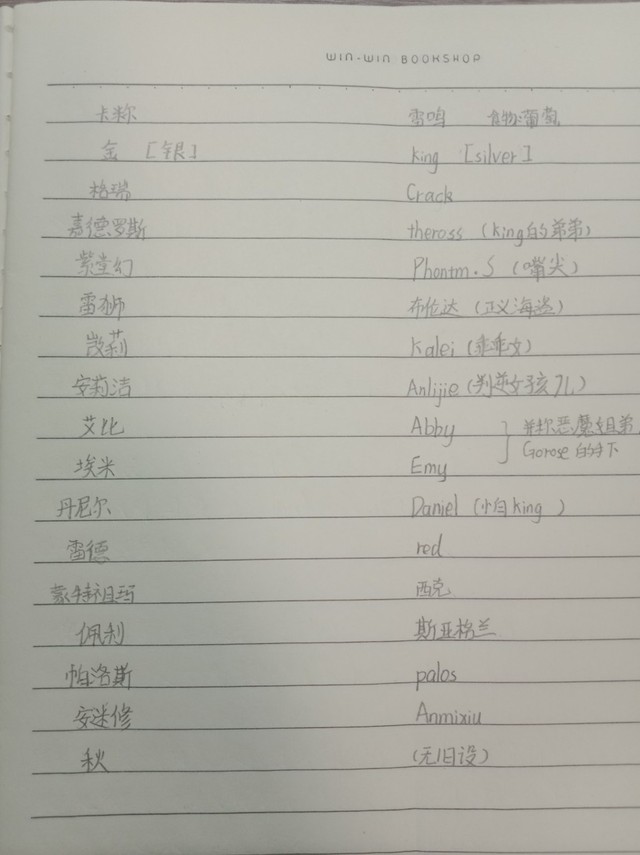 WIN-WIN BOOKSHOP
卡米尔 雷鸣 食物:葡萄
金 [银] king [silver]
格瑞 Crack
嘉德罗斯 theross (king的弟弟)
紫堂幻 Phontm.S (嘴尖)
雷狮 布伦达 (正义海盗)
凯莉 Kalei (乖乖女)
安莉洁 Anlijie (判逆女孩儿)
艾比 Abby
埃米 Emy
并称恶魔组弟,
Gorose 的手下
丹尼尔 Daniel (怕king )
雷德 red
蒙特祖玛 西克
佩利 斯亚格兰
帕洛斯 palos
安迷修 Anmixiu
秋 (无旧设)